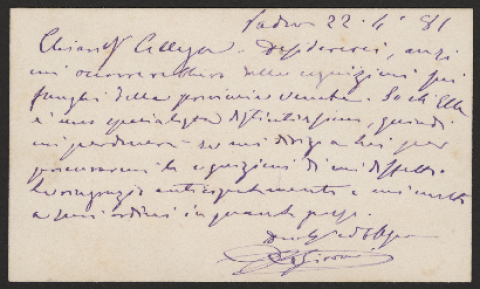 Padova 22. 4. 81
Chiar. Collega. Desidererei, anzi
mi occorrerebbero delle cognizioni sui
funghi della provincia veneta. So ch'Ella
è uno specialista, quindi
mi perdonerà se mi dirigo a Lei per
procurarmi le cognizioni di cui difetto.
La ringrazio anticipatamente e mi metto
a suoi ordini in quanto posso.